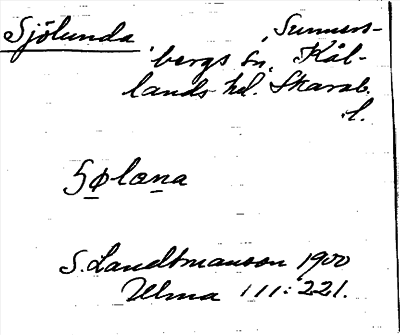 Sjölunda Sunners-
bergs sn. Kål-
lands hd. Skarab.
l.
Sø̱læ̱na
S. Landtmanson 1900
Ulma 111:221.